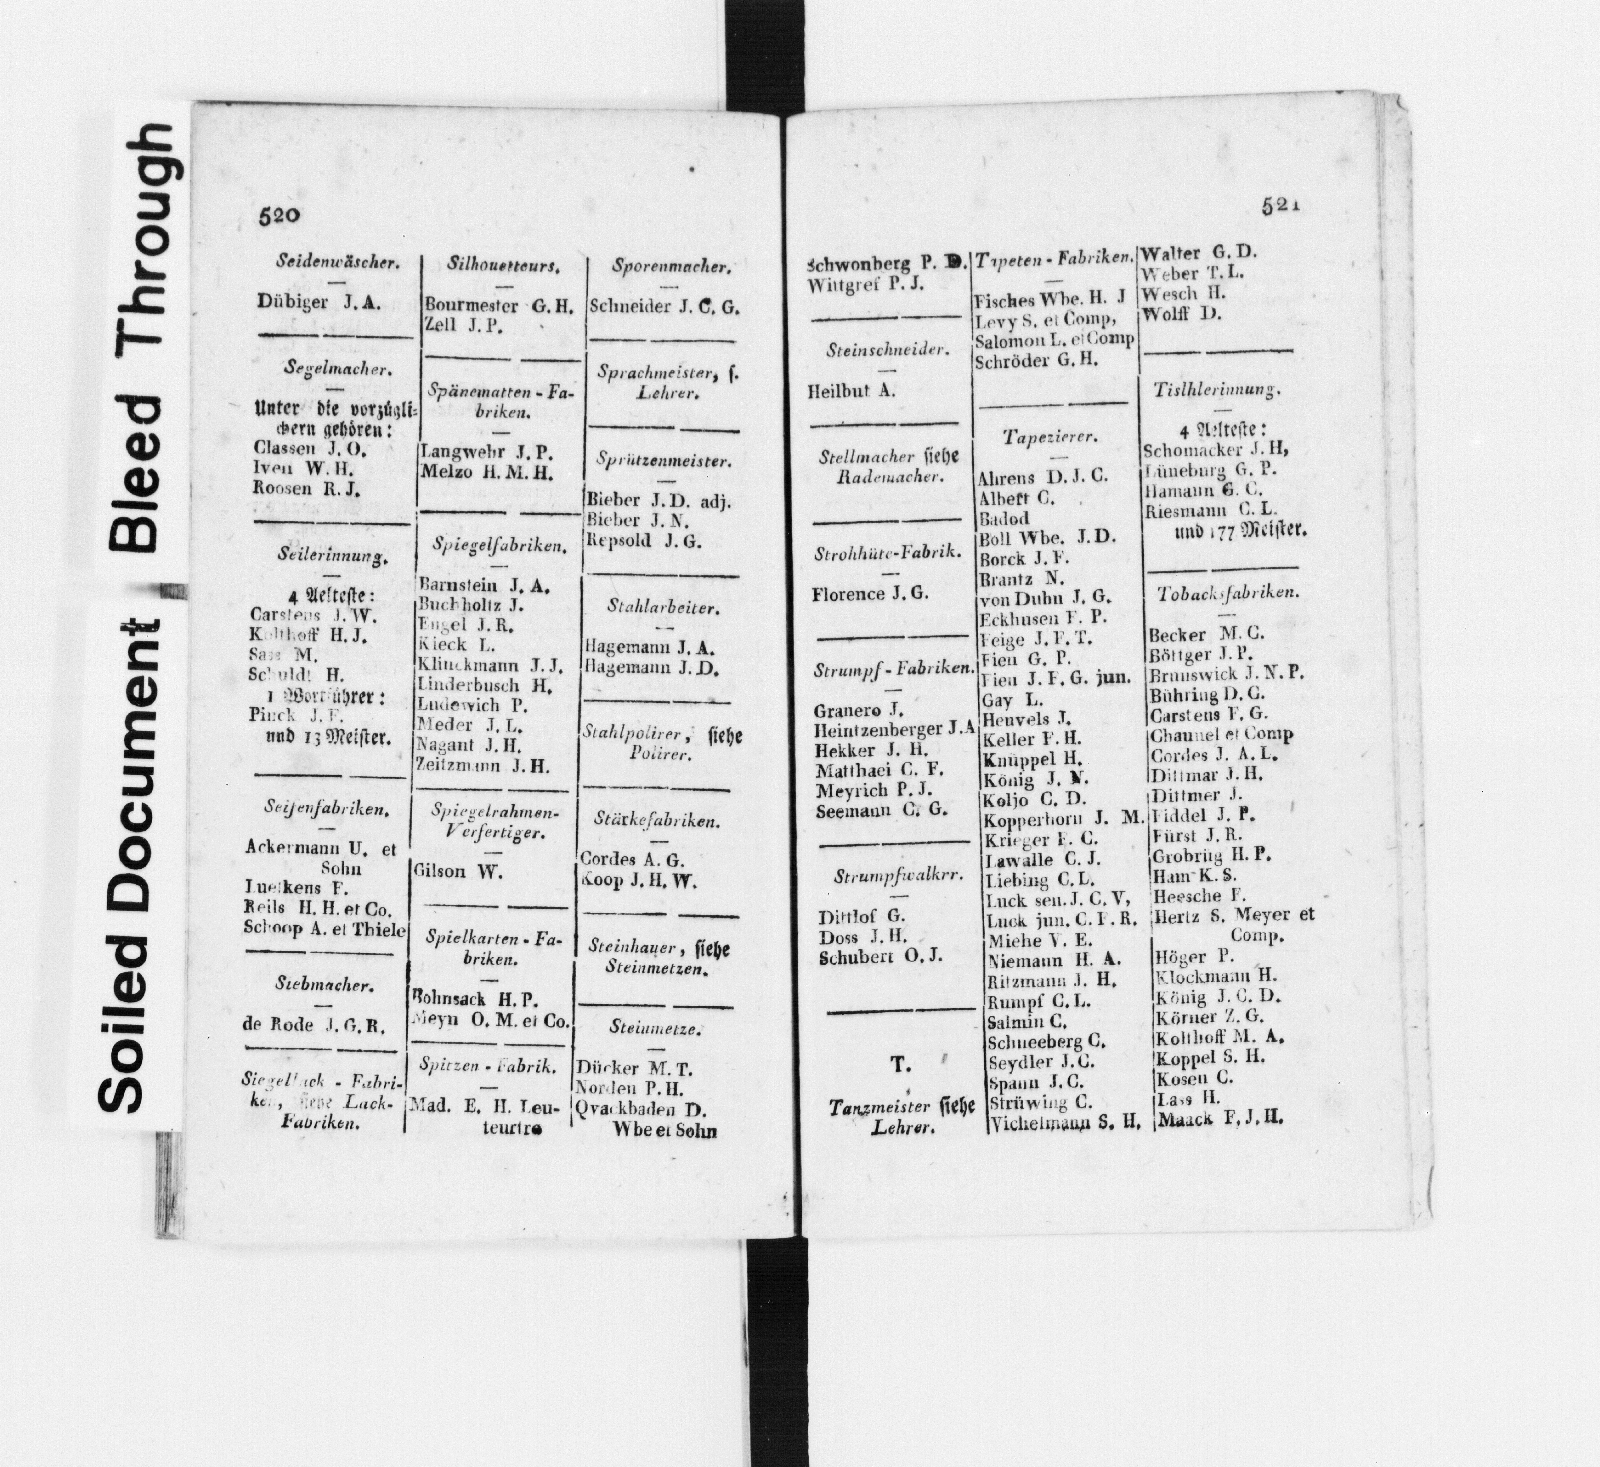 Soiled Document Bleed Through
520
Seidenwäscher.
Dübiger J. A.
Segelmacher.
Unter die vorzügli-
chern gehören:
Classen J. O.
Iven W. H.
Roosen R. J.
Seilerinnung.
4 Aelteste:
Carstens J. W.
Kolthoff H. J.
Sass M.
Schuldt H.
1 Wortführer:
Pinck J. F.
und 13 Meister.
Seifenfabriken.
Ackermann U. et
Sohn
Luelkens F.
Reils H. H. et Co.
Schoop A. et Thiele
Siebmacher.
de Rode J. G. R.
Siegellack - Fabri-
ken, siehe Lack-
Fabriken.
Silhouetteurs.
Bourmester G. H.
Zell J. P.
Spänematten - Fa-
briken.
Langwehr J. P.
Melzo H. M. H.
Spiegelfabriken.
Barnstein J. A.
Buchholtz J.
Engel J. R.
Kieck L.
Klinckmann J. J.
Linderbusch H.
Ludewich P.
Meder J. L.
Nagant J. H.
Zeitzmann J. H.
Spiegelrahmen-
Verfertiger.
Gilson W.
Spielkarten - Fa-
briken.
Bohnsack H. P.
Meyn O. M. et Co.
Spitzen - Fabrik.
Mad. E. H. Leu-
teurtre
Sporenmacher.
Schneider J. C. G.
Sprachmeister, s.
Lehrer.
Sprützenmeister.
Bieber J. D. adj.
Bieber J. N.
Repsold J. G.
Stahlarbeiter.
Hagemann J. A.
Hagemann J. D.
Stahlpolirer, siehe
Polirer.
Stärkefabriken.
Cordes A. G.
Koop J. H. W.
Steinhauer, siehe
Steinmetzen.
Steinmetze.
Dücker M. T.
Norden P. H.
Qvackbaden D.
Wbe et Sohn
521
Schwonberg P. D.
Wittgref P. J.
Steinschneider.
Heilbut A.
Stellmacher siehe
Rademacher.
Strohhüte-Fabrik.
Florence J. G.
Strumpf-Fabriken.
Granero J.
Heintzenberger J. A
Hekker J. H.
Matthaei C. F.
Meyrich P. J.
Seemann C. G.
Strumpfwalkrr.
Dittlof G.
Doss J. H.
Schubert O. J.
T.
Tanzmeister siehe
Lehrer.
Tapeten - Fabriken.
Fisches Wbe. H. J
Levy S. et Comp,
Salomon L. et Comp
Schröder G. H.
Tapezierer.
Ahrens D. J. C.
Albert C.
Badod
Boll Wbe. J. D.
Borck J. F.
Brantz N.
von Duhn J. G.
Eckhusen F. P.
Feige J. F. T.
Fien G. P.
Fien J. F. G. jun.
Gay L.
Heuvels J.
Keller F. H.
Knüppel H.
König J. N.
Koljo C. D.
Kopperhorn J. M.
Krieger F. C.
Lawalle C. J.
Liebing C. L.
Luck sen. J. C. V,
Luck jun. C. F. R.
Miehe V. E.
Niemann H. A.
Ritzmann J. H.
Rumpf C. L.
Salmin C.
Schneeberg C.
Seydler J. C.
Spann J. C.
Strüwing C.
Vichelmann S. H.
Walter G. D.
Weber T. L.
Wesch H.
Wolff D.
Tislhlerinnung.
4 Aelteste:
Schomacker J. H,
Lüneburg G. P.
Hamann G. C.
Riesmann C. L.
und 177 Meister.
Tobacksfabriken.
Becker M. C.
Böttger J. P.
Brunswick J. N. P.
Bühring D. G.
Carstens F. G.
Chaunel et Comp
Cordes J. A. L.
Dittmar J. H.
Dittmer J.
Fiddel J. P.
Fürst J. R.
Grobrüg H. P.
Ham K. S.
Heesche F.
Hertz S. Meyer et
Comp.
Höger P.
Klockmann H.
König J. C. D.
Körner Z. G.
Kolthoff M. A.
Koppel S. H.
Kosen C.
Lass H.
Maack F. J. H.